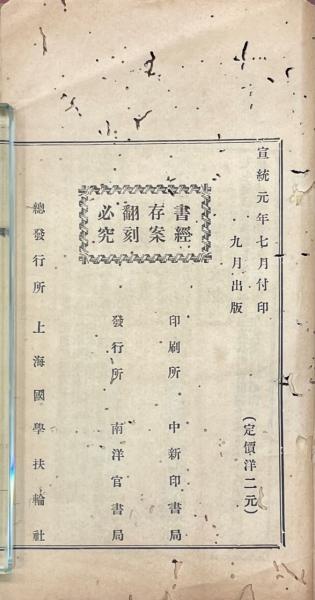 宣統元年七月付印
九月出版
(定價洋二元)
書經
存案
翻刻
必究
印刷所 中新印書局
發行所 南洋官書局
總發行所 上海國學扶輪社